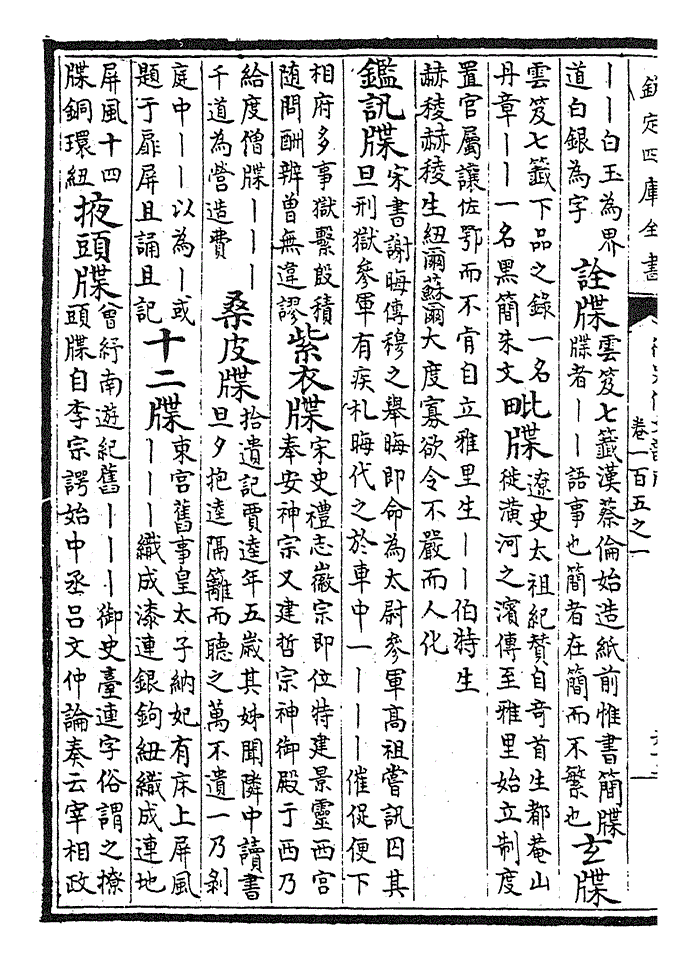 欽定四庫全書
卷一百五之一
丨丨白玉為界
道白銀為字
詮牒
雲笈七籤漢蔡倫始造紙前惟書簡牒
牒者丨丨語事也簡者在簡而不繁也
玄牒
雲笈七籤下品之錄一名
丹章丨丨一名黑簡朱文
毗牒
遼史太祖紀贊自奇首生都菴山
徙潢河之濱傳至雅里始立制度
置官屬讓佐鄂而不肯自立雅里生丨丨伯特生
赫稜赫稜生紐爾蘇爾大度寡欲令不嚴而人化
鑑訊牒
宋書謝晦傳穆之舉晦即命為太尉參軍高祖嘗訊囚其
旦刑獄參軍有疾札晦代之於車中一丨丨丨催促便下
相府多事獄繫殷積
隨問酬辨曾無違謬
紫衣牒
宋史禮志徽宗即位特建景靈西宮
奉安神宗又建哲宗神御殿于西乃
給度僧牒丨丨丨
千道為營造費
桑皮牒
拾遺記賈逵年五歲其姊聞隣中讀書
旦夕抱逵隔籬而聽之萬不遺一乃剝
庭中丨丨以為丨或
題于扉屏且誦且記
十二牒
東宮舊事皇太子納妃有床上屏風
丨丨丨織成漆連銀鉤紐織成連地
屏風十四
牒銅環紐
掖頭牒
曾紆南遊紀舊丨丨丨御史臺連字俗謂之撩
頭牒自李宗諤始中丞呂文仲論奏云宰相政